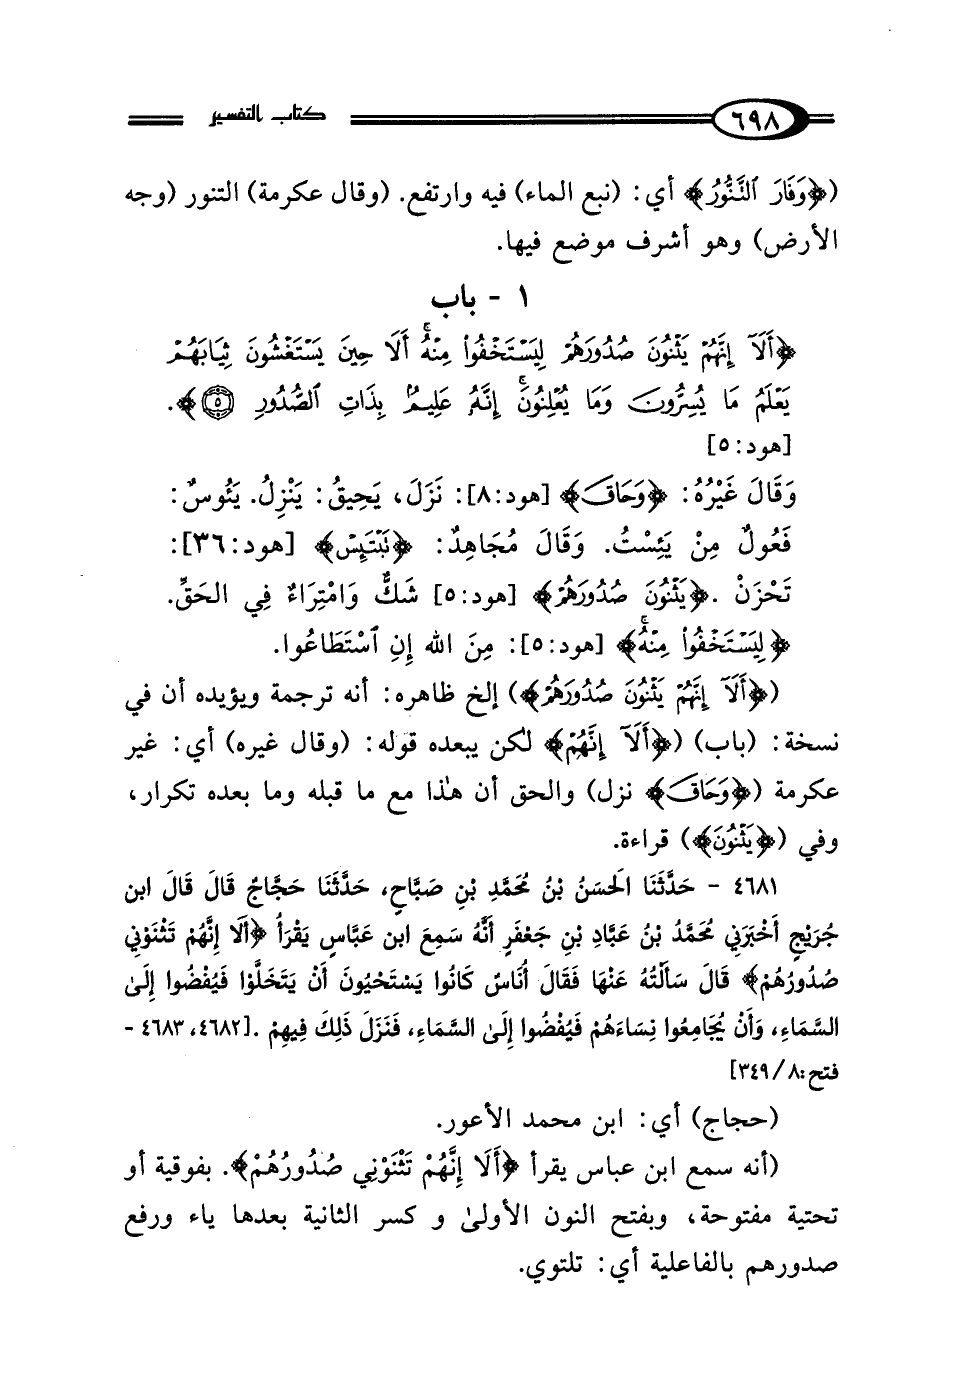 ٦٩٨ كتاب التفسير
(﴿وَفَارَ ٱلتَّنُّورُ﴾ أي: (نبع الماء) فيه وارتفع. (وقال عكرمة) التنور (وجه
الأرض) وهو أشرف موضع فيها.
١ - باب
﴿أَلَآ إِنَّهُمْ يَثْنُونَ صُدُورَهُمْ لِيَسْتَخْفُوا۟ مِنْهُ ۚ أَلَا حِينَ يَسْتَغْشُونَ ثِيَابَهُمْ
يَعْلَمُ مَا يُسِرُّونَ وَمَا يُعْلِنُونَ ۚ إِنَّهُۥ عَلِيمٌۢ بِذَاتِ ٱلصُّدُورِ ٥﴾.
[هود: ٥]
وَقَالَ غَيْرُهُ: ﴿وَحَاقَ﴾ [هود: ٨]: نَزَلَ، يَحِيقُ: يَنْزِلُ. يَئُوسٌ:
فَعُولٌ مِنْ يَئِسْتُ. وَقَالَ مُجَاهِدٌ: ﴿تَبْتَئِسْ﴾ [هود: ٣٦]:
تَحْزَنْ .﴿يَثْنُونَ صُدُورَهُمْ﴾ [هود: ٥] شَكٌّ وَامْتِرَاءٌ فِي الحَقِّ.
﴿لِيَسْتَخْفُوا۟ مِنْهُ ۚ﴾ [هود: ٥]: مِنَ الله إِنِ ٱسْتَطَاعُوا.
(﴿أَلَآ إِنَّهُمْ يَثْنُونَ صُدُورَهُمْ﴾) إلخ ظاهره: أنه ترجمة ويؤيده أن في
نسخة: (باب) (﴿أَلَآ إِنَّهُمْ﴾ لكن يبعده قوله: (وقال غيره) أي: غير
عكرمة (﴿وَحَاقَ﴾ نزل) والحق أن هذا مع ما قبله وما بعده تكرار،
وفي (﴿يَثْنُونَ﴾) قراءة.
٤٦٨١ - حَدَّثَنَا الَحسَنُ بْنُ مُحَمَّدِ بْنِ صَبَّاحٍ، حَدَّثَنَا حَجَّاجٌ قَالَ قَالَ ابن
جُرَيْجٍ أَخْبَرَنِي مُحَمَّدُ بْنُ عَبَّادِ بْنِ جَعْفَرٍ أَنَّهُ سَمِعَ ابن عَبَّاسٍ يَقْرَأُ ﴿أَلَا إِنَّهُمْ تَثْنَوْنِي
صُدُورُهُمْ﴾ قَالَ سَأَلْتُهُ عَنْهَا فَقَالَ أُنَاسٌ كَانُوا يَسْتَحْيُونَ أَنْ يَتَخَلَّوْا فَيُفْضُوا إِلَى
السَّمَاءِ، وَأَنْ يُجَامِعُوا نِسَاءَهُمْ فَيُفْضُوا إِلَى السَّمَاءِ، فَنَزَلَ ذَلِكَ فِيهِمْ .[٤٦٨٢، ٤٦٨٣ -
فتح: ٨/ ٣٤٩]
(حجاج) أي: ابن محمد الأعور.
(أنه سمع ابن عباس يقرأ ﴿أَلَا إِنَّهُمْ تَثْنَوْنِي صُدُورُهُمْ﴾. بفوقية أو
تحتية مفتوحة، وبفتح النون الأولى و كسر الثانية بعدها ياء ورفع
صدورهم بالفاعلية أي: تلتوي.